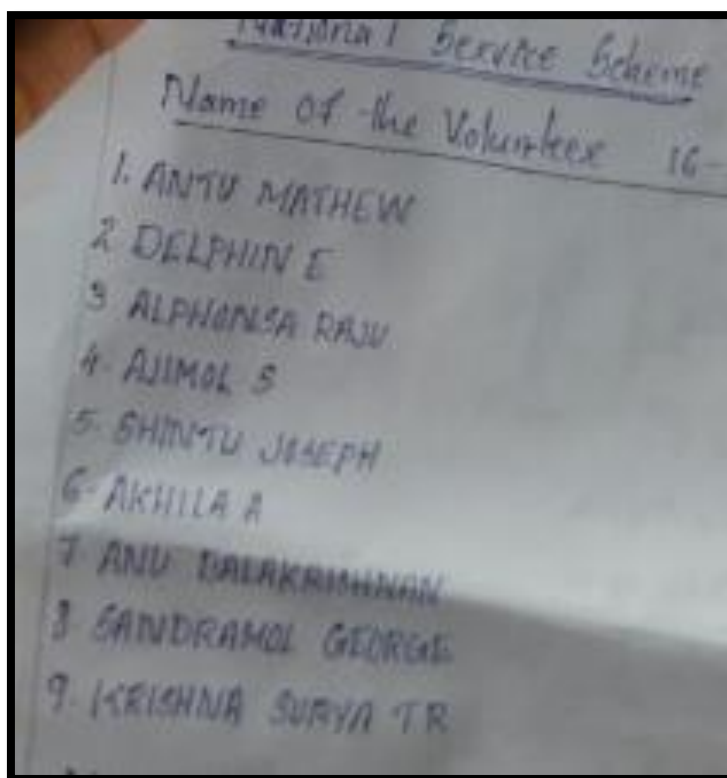 National Service Scheme
Name of the Volunteer 16-
1. ANTU MATHEW
2 DELPHIN E
3 ALPHONSA RAJU
4. AJIMOL S
5. SHINTU JOSEPH
6- AKHILA A
7 ANU BALAKRISHNAN
8 SANDRAMOL GEORGE
9. KRISHNA SURYA T R